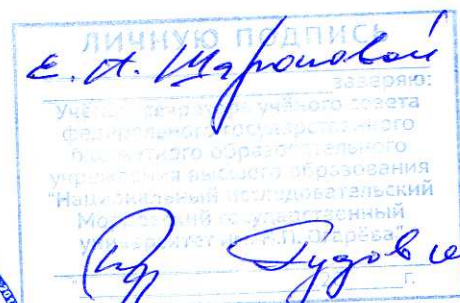 ЛИЧНУЮ ПОДПИСЬ
Е. А. Шароновой
заверяю:
Учёный секретарь учёного совета
федерального государственного
бюджетного образовательного
учреждения высшего образования
"Национальный исследовательский
Мордовский государственный
университет им. Н.П. Огарёва"
г.